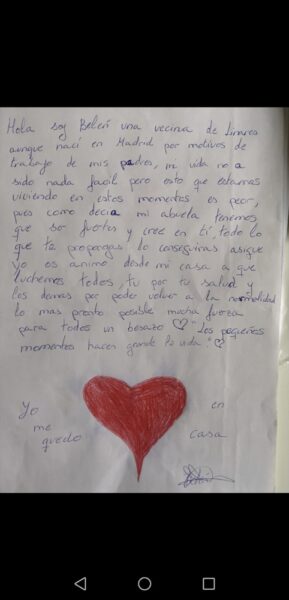 Hola soy Belén una vecina de Linares
aunque nací en Madrid por motivos de
trabajo de mis padres, mi vida no a
sido nada facil pero esto que estamos
viviendo en estos momentos es peor,
pues como decia mi abuela tenemos
que ser fuertes y cree en ti, todo lo
que te propongas lo conseguiras asique
yo os animo desde mi casa a que
luchemos todos, tu por tu salud y
los demas por poder volver a la normalidad
lo mas pronto posible mucha fuerza
para todos un besazo ♡ "Los pequeños
momentos hacen grande la vida" ♡
Yo en
me
quedo casa